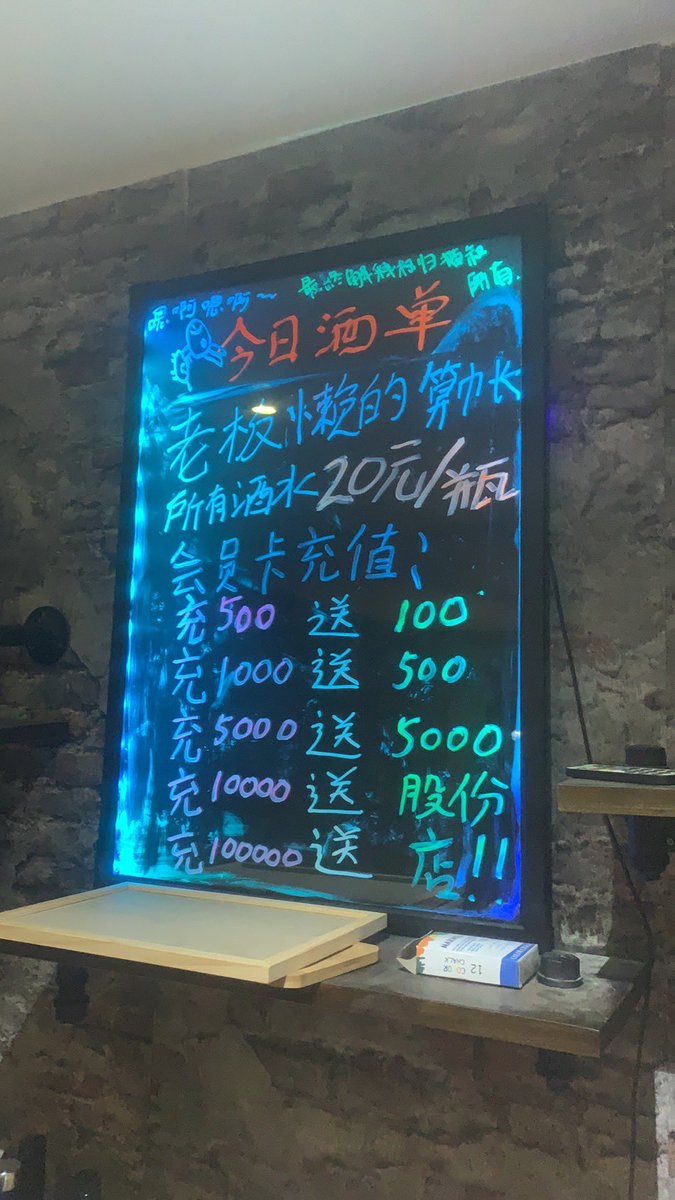 嗯啊嗯啊~
最终解释权归猫和
所有.
今日酒单
老板懒的算帐
所有酒水20元/瓶
会员卡充值:
充500 送 100
充1000 送 500
充5000 送 5000
充10000 送 股份
充100000 送 店!!
COLOR
CHALK
12